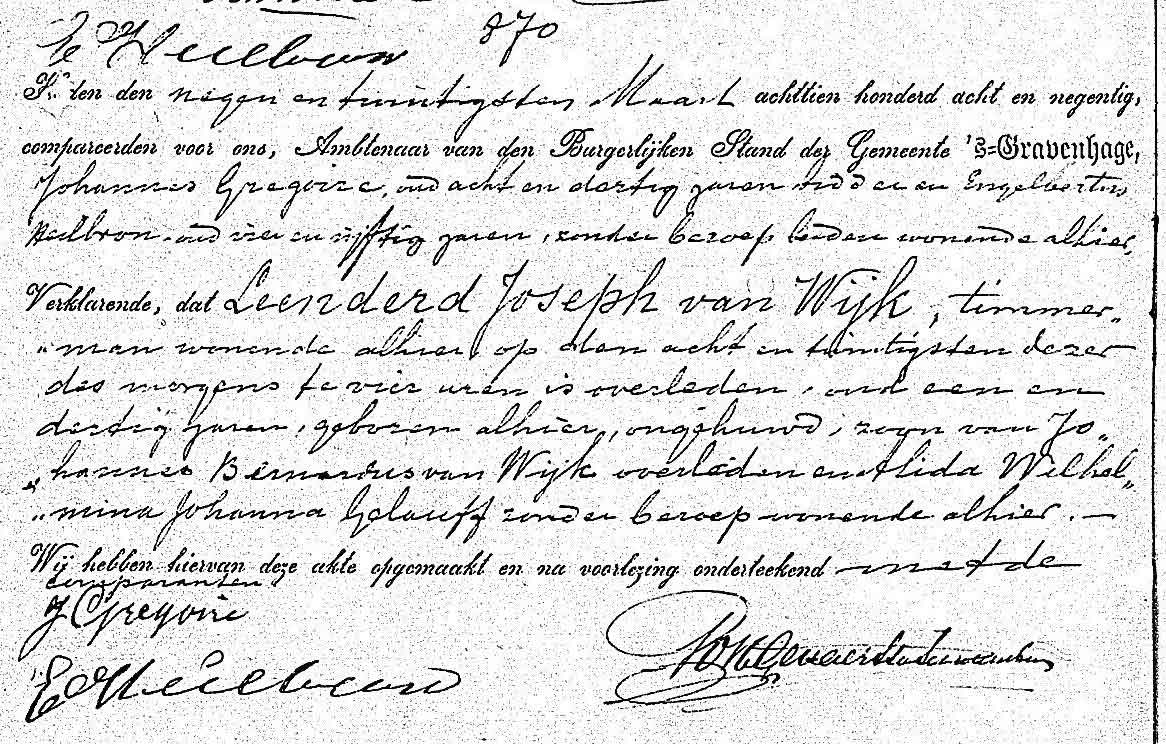 870
E Heilbron
Heden den negen en twintigsten Maart achttien honderd acht en negentig,
compareerden voor ons, Ambtenaar van den Burgerlijken Stand der Gemeente 's=Gravenhage,
Johannes Gregoire, oud acht en dertig jaren en Engelbertus
Heilbron oud vier en vijftig jaren, zonder beroep beiden wonende alhier,
Verklarende, dat Leenderd Joseph van Wijk, timmer„
„man wonende alhier, op den acht en twintigsten dezer
des morgens te vier uren is overleden, oud een en
dertig jaren, geboren alhier, ongehuwd, zoon van Jo„
„hannes Bernardus van Wijk overleden en Alida Wilhel„
„mina Johanna Gelauff zonder beroep wonende alhier.—
Wij hebben hiervan deze akte opgemaakt en na voorlezing onderteekend met de
comparanten.
J Gregoire
E Heilbron